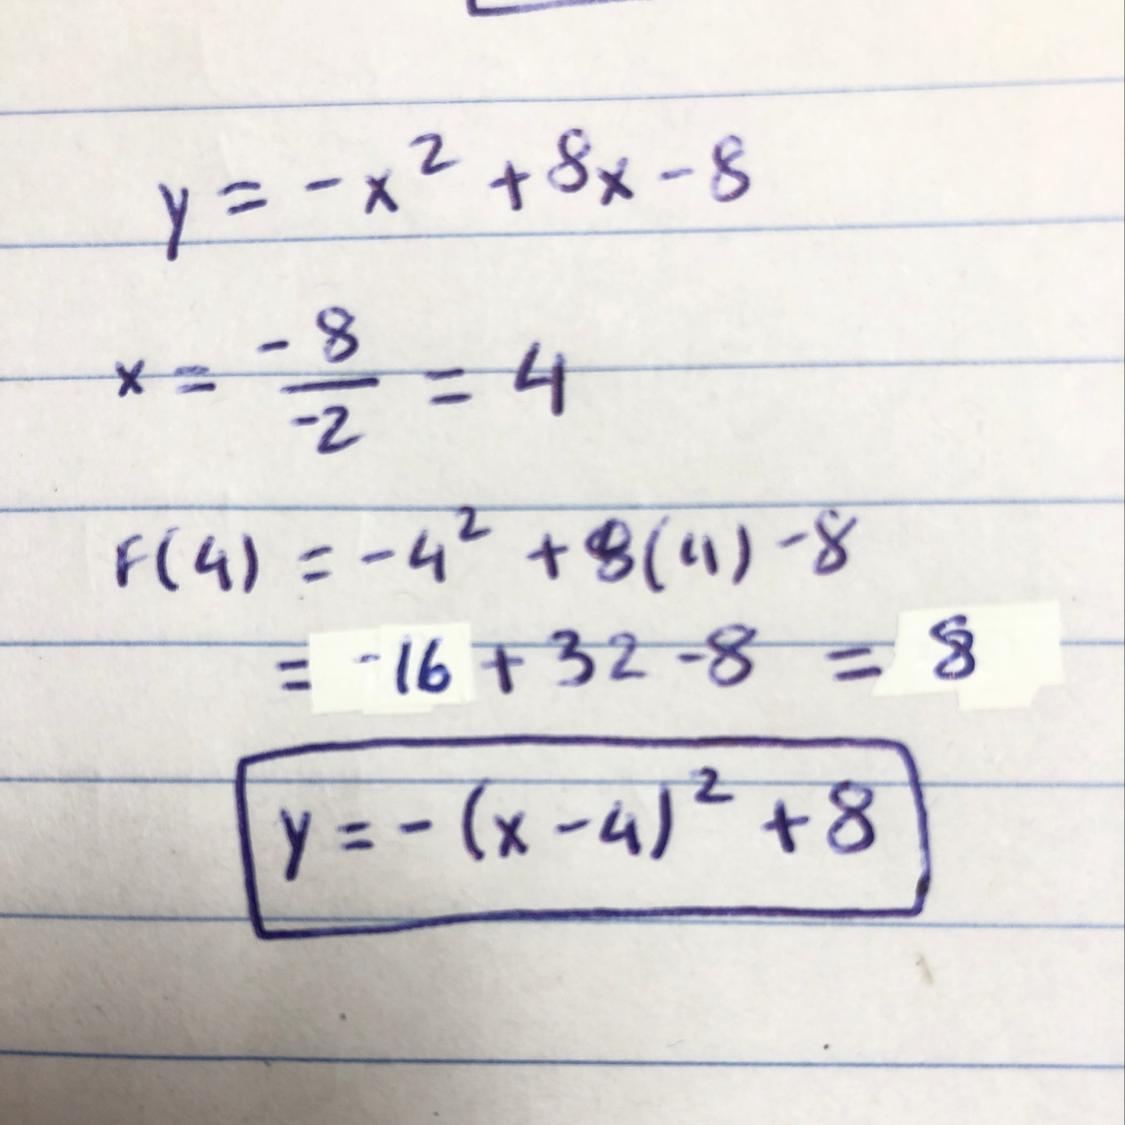 y = -x² + 8x - 8
x = -8/-2 = 4
F(4) = -4² + 8(4) - 8
= -16 + 32 - 8 = 8
y = -(x - 4)² + 8